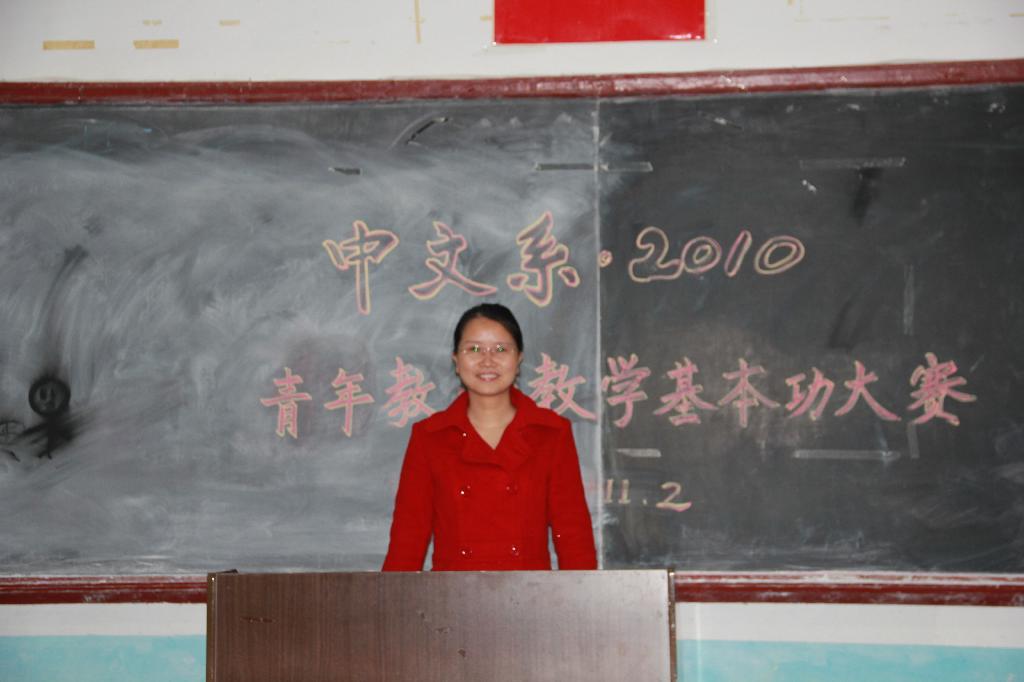 中文系·2010
青年教 教学基本功大赛
11.2